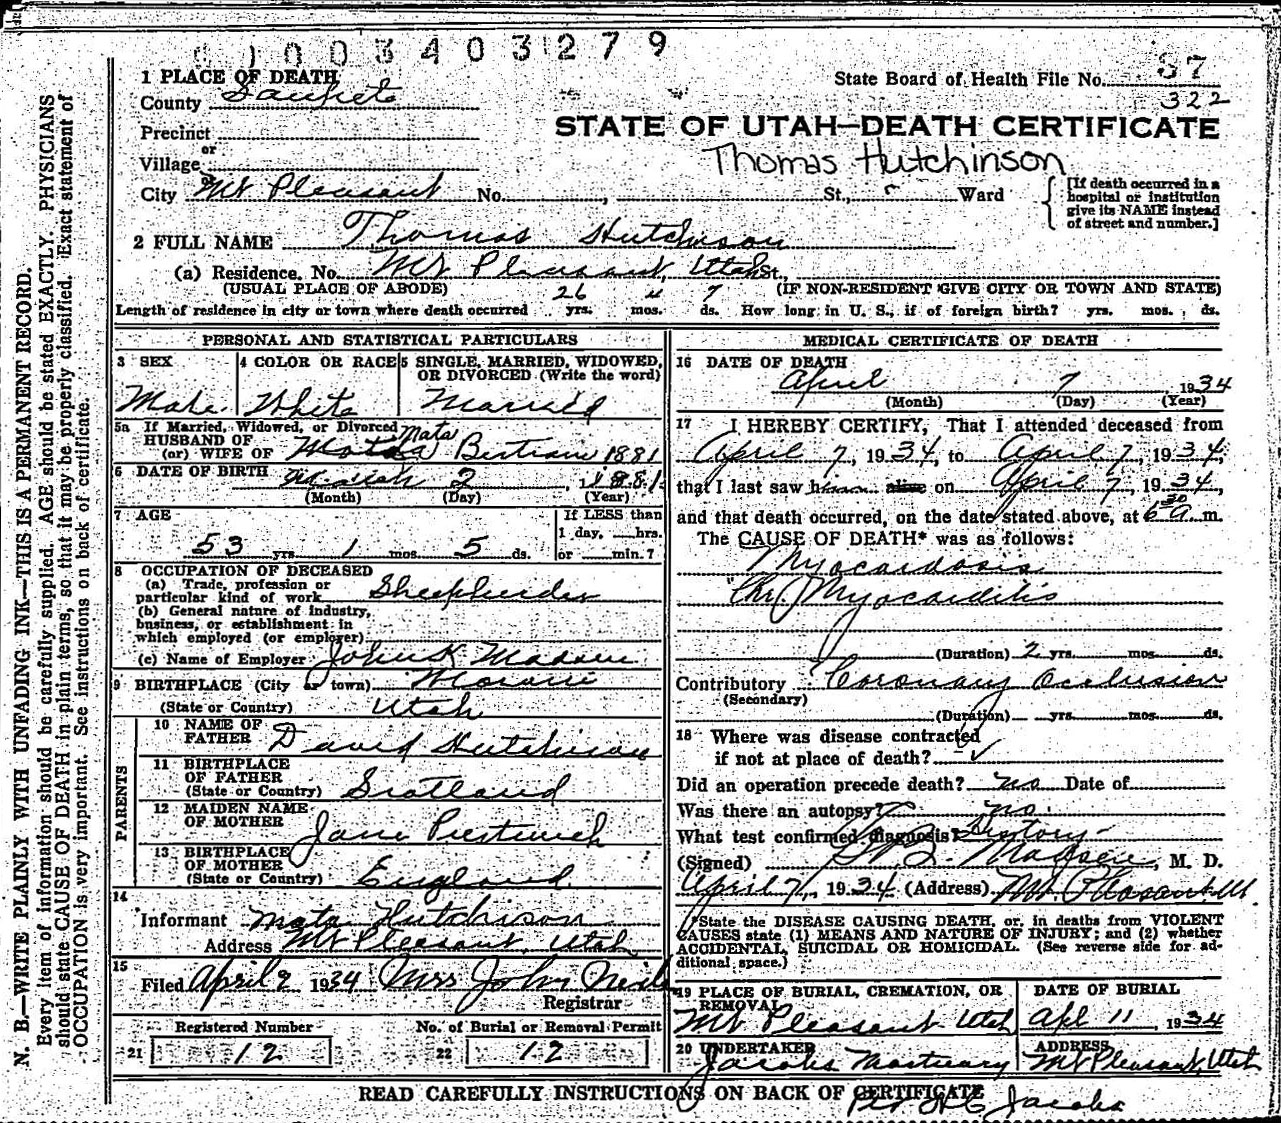 003403279
1 PLACE OF DEATH
State Board of Health File No. 37
County Sanpete
322
STATE OF UTAH—DEATH CERTIFICATE
Precinct
or
Thomas Hutchinson
Village
City Mt Pleasant No. , St., Ward
[If death occurred in a hospital or institution give its NAME instead of street and number.]
2 FULL NAME Thomas Hutchison
(a) Residence. No. Mt Pleasant, Utah St.,
(USUAL PLACE OF ABODE) (IF NON-RESIDENT GIVE CITY OR TOWN AND STATE)
Length of residence in city or town where death occurred 26 yrs. " mos. 7 ds. How long in U. S., if of foreign birth? yrs. mos. ds.
PERSONAL AND STATISTICAL PARTICULARS
3 SEX 4 COLOR OR RACE 5 SINGLE, MARRIED, WIDOWED, OR DIVORCED (Write the word)
Male White Married
5a If Married, Widowed, or Divorced
HUSBAND OF Mata
(or) WIFE OF 1881
6 DATE OF BIRTH March 2, 1881
(Month) (Day) (Year)
7 AGE If LESS than
1 day, hrs.
53 yrs. 1 mos. 5 ds. or min.?
8 OCCUPATION OF DECEASED
(a) Trade, profession or
particular kind of work Sheepherder
(b) General nature of industry,
business, or establishment in
which employed (or employer)
(c) Name of Employer John K Madsen
9 BIRTHPLACE (City or town) Moroni
(State or Country) Utah
PARENTS
10 NAME OF
FATHER David Hutchison
11 BIRTHPLACE
OF FATHER
(State or Country) Scotland
12 MAIDEN NAME
OF MOTHER Jane Prestwich
13 BIRTHPLACE
OF MOTHER
(State or Country) England
14
Informant Mata Hutchison
Address Mt Pleasant, Utah
15
Filed April 9 1934 Mrs John
Registrar
Registered Number No. of Burial or Removal Permit
21 12 22 12
MEDICAL CERTIFICATE OF DEATH
16 DATE OF DEATH
April 7 1934
(Month) (Day) (Year)
17 I HEREBY CERTIFY, That I attended deceased from
April 7, 1934, to April 7, 1934,
that I last saw him alive on April 7, 1934,
and that death occurred, on the date stated above, at 6 30 a. m.
The CAUSE OF DEATH* was as follows:
Myocardosis
Chr Myocarditis
(Duration) 2 yrs. mos. ds.
Contributory Coronary Occlusion
(Secondary)
(Duration) yrs. mos. ds.
18 Where was disease contracted
if not at place of death?
Did an operation precede death? no Date of
Was there an autopsy? no.
What test confirmed diagnosis? History
(Signed) Madsen, M. D.
April 7, 1934 (Address) Mt Pleasant Ut
*State the DISEASE CAUSING DEATH, or, in deaths from VIOLENT
CAUSES state (1) MEANS AND NATURE OF INJURY; and (2) whether
ACCIDENTAL, SUICIDAL OR HOMICIDAL. (See reverse side for ad-
ditional space.)
19 PLACE OF BURIAL, CREMATION, OR REMOVAL DATE OF BURIAL
Mt Pleasant Utah Apl 11, 1934
20 UNDERTAKER ADDRESS
Jacobs Mortuary Mt Pleasant, Utah
READ CAREFULLY INSTRUCTIONS ON BACK OF CERTIFICATE
Per Jacobs
N. B.—WRITE PLAINLY WITH UNFADING INK—THIS IS A PERMANENT RECORD.
Every item of information should be carefully supplied. AGE should be stated EXACTLY. PHYSICIANS
should state CAUSE OF DEATH in plain terms, so that it may be properly classified. Exact statement of
OCCUPATION is very important. See instructions on back of certificate.